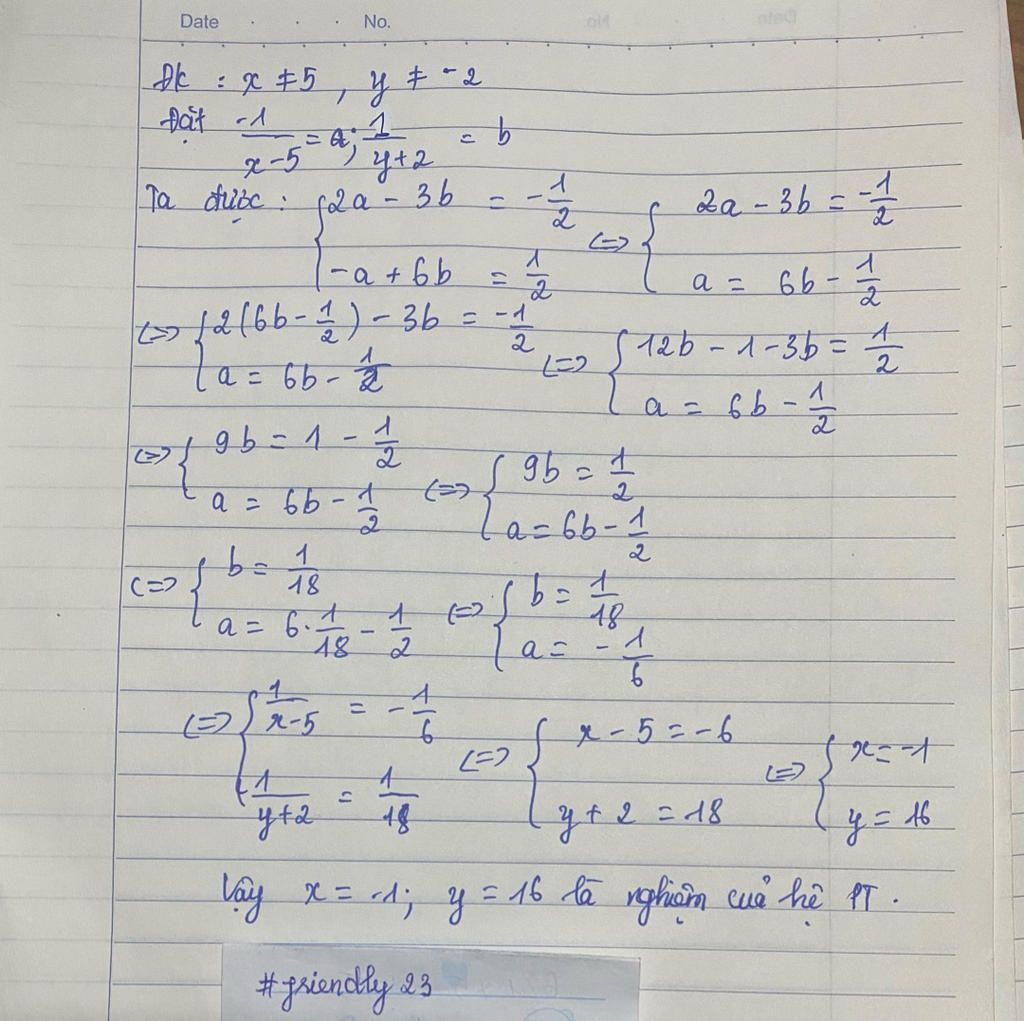 Date . . . No.
ĐK : x ≠ 5 , y ≠ -2
Đặt -1/(x-5) = a; 1/(y+2) = b
Ta được: { 2a - 3b = -1/2 ; -a + 6b = 1/2 <=> { 2a - 3b = -1/2 ; a = 6b - 1/2
<=> { 2(6b - 1/2) - 3b = -1/2 ; a = 6b - 1/2 <=> { 12b - 1 - 3b = 1/2 ; a = 6b - 1/2
<=> { 9b = 1 - 1/2 ; a = 6b - 1/2 <=> { 9b = 1/2 ; a = 6b - 1/2
<=> { b = 1/18 ; a = 6 . 1/18 - 1/2 <=> { b = 1/18 ; a = - 1/6
<=> { 1/(x-5) = - 1/6 ; 1/(y+2) = 1/18 <=> { x - 5 = -6 ; y + 2 = 18 <=> { x = -1 ; y = 16
Vậy x = -1; y = 16 là nghiệm cuả hệ PT .
#friendly 23